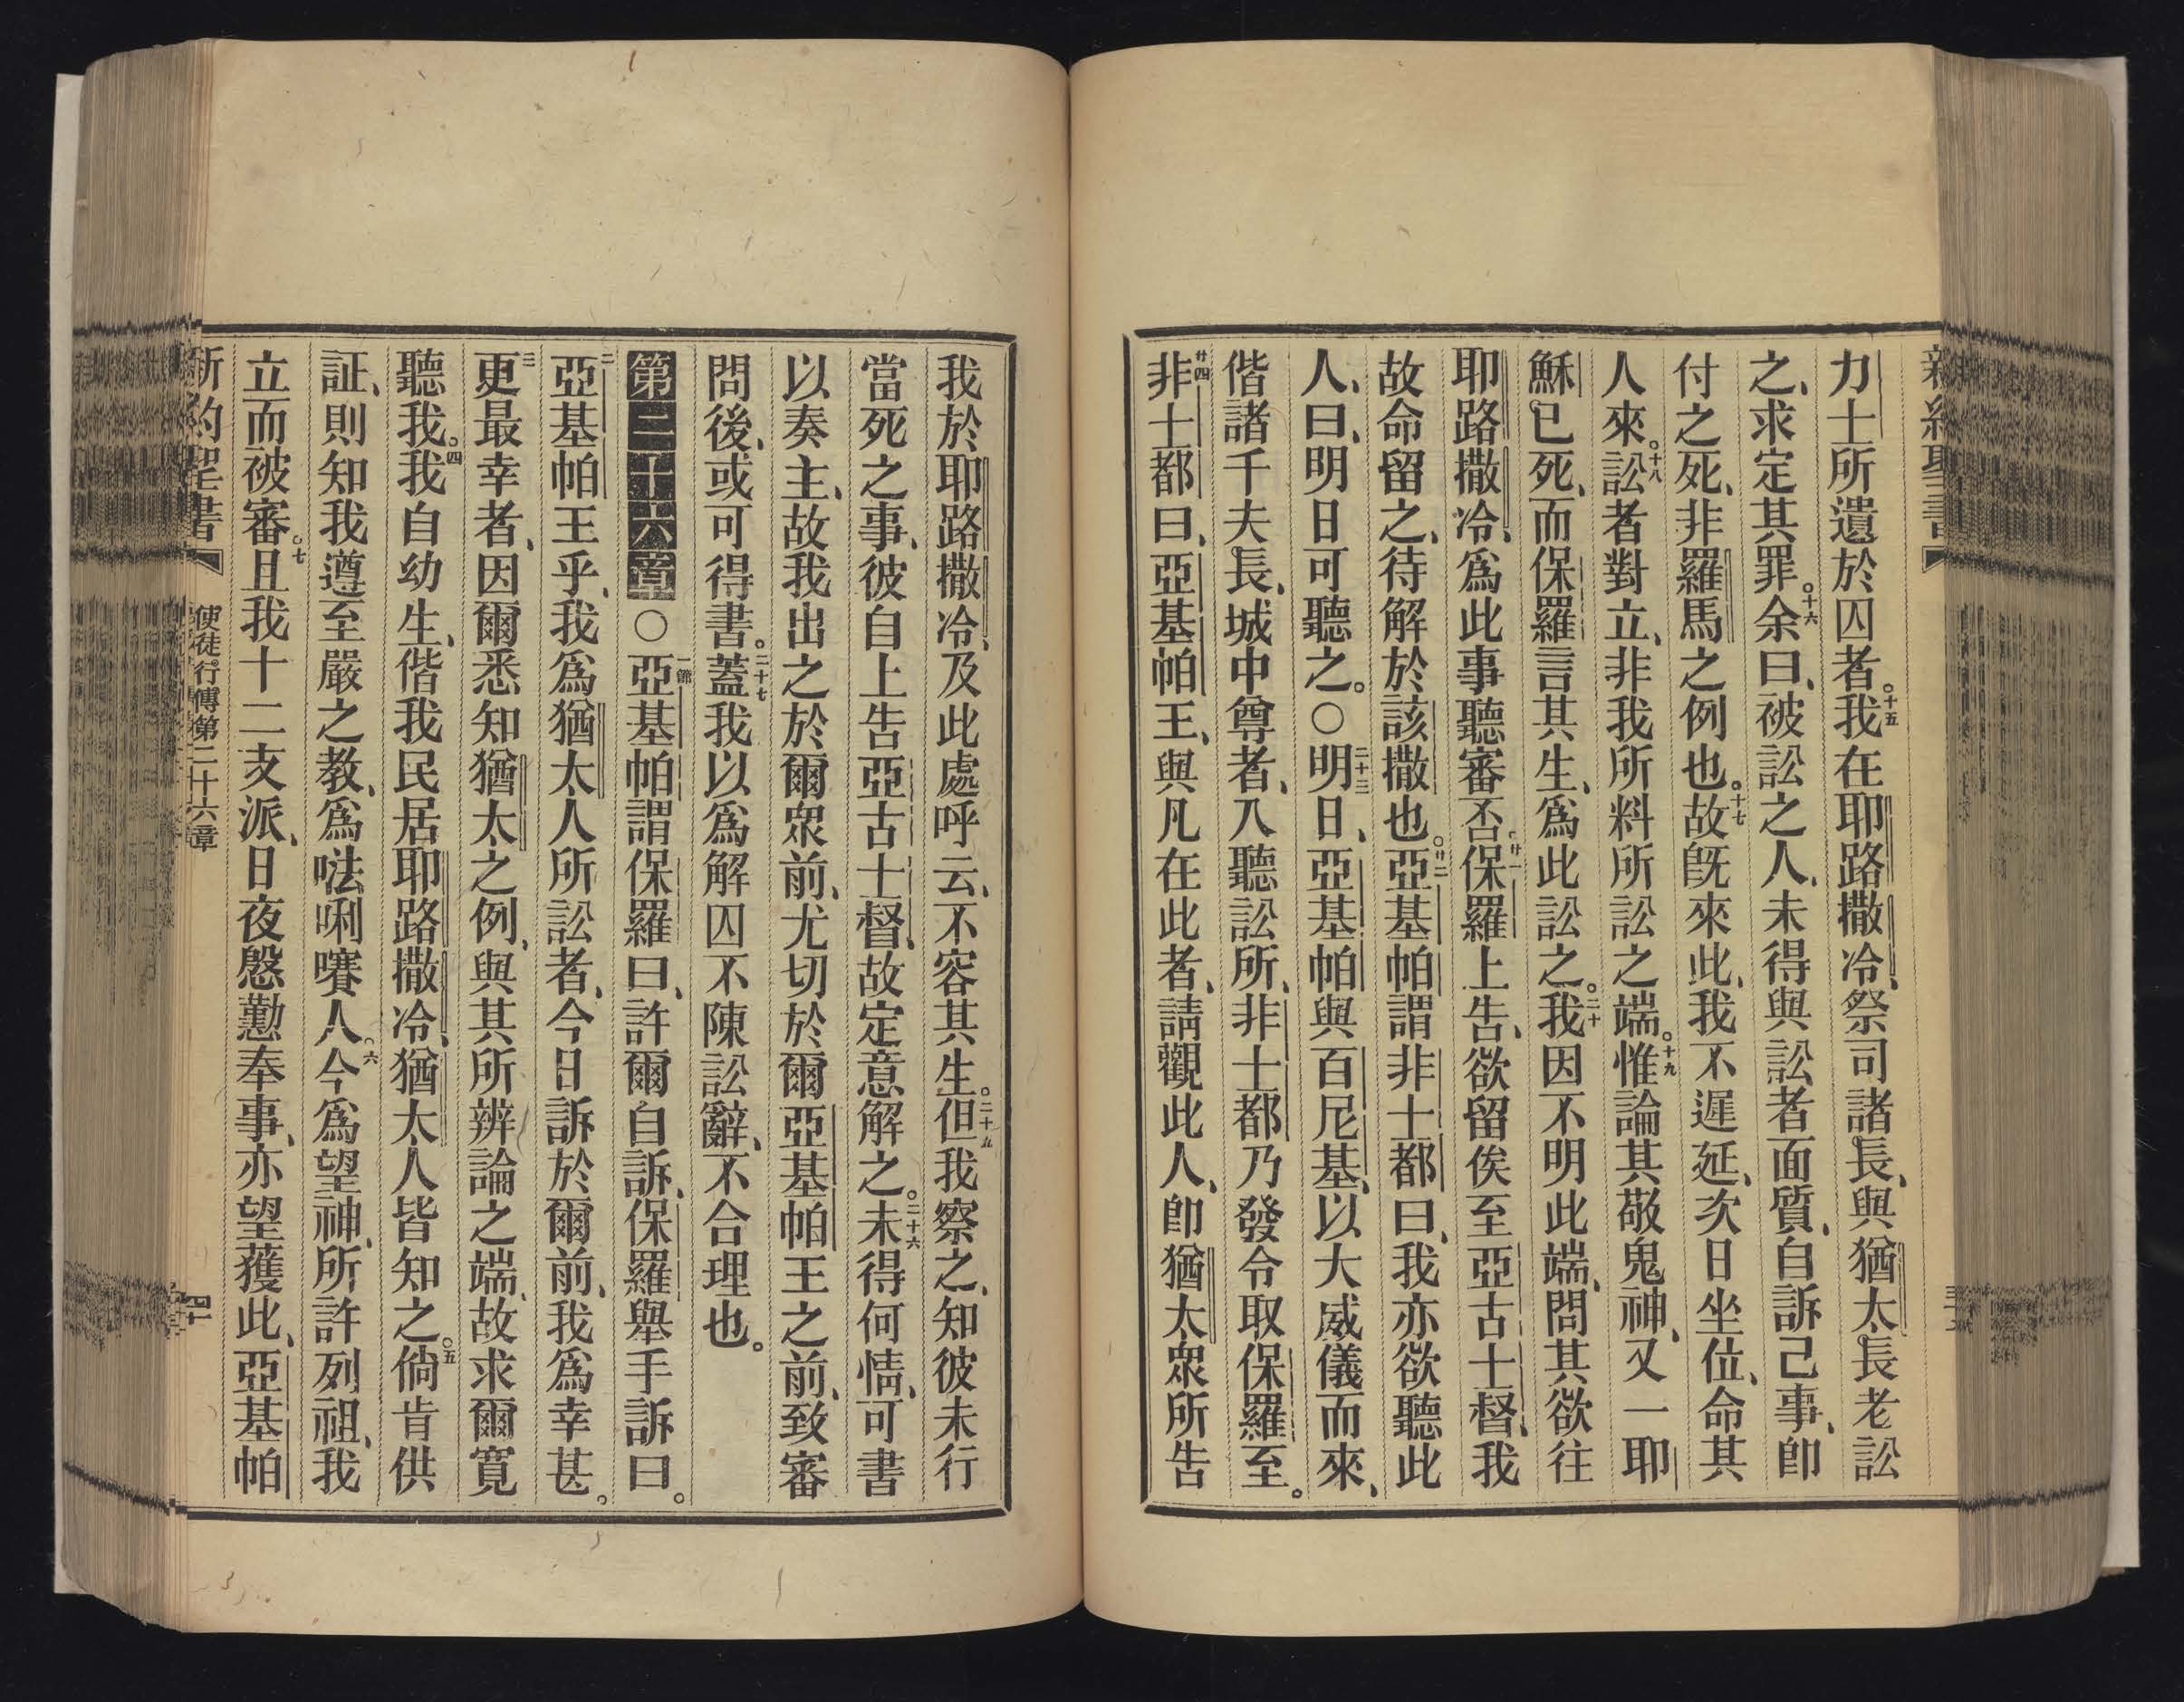 新約聖書
力士所遺於囚者。十五我在耶路撒冷、祭司諸長、與猶太長老訟
之、求定其罪。十六余曰、被訟之人、未得與訟者面質、自訴己事、卽
付之死、非羅馬之例也。十七故旣來此、我不遲延、次日坐位、命其
人來。十八訟者對立、非我所料所訟之端。十九惟論其敬鬼神、又一耶
穌已死、而保羅言其生、爲此訟之。二十我因不明此端、問其欲往
耶路撒冷、爲此事聽審否。廿一保羅上告、欲留俟至亞古士督、我
故命留之、待解於該撒也。廿二亞基帕謂非士都曰、我亦欲聽此
人、曰、明日可聽之。○二十三明日、亞基帕與百尼基、以大威儀而來、
偕諸千夫長、城中尊者、入聽訟所、非士都乃發令取保羅至。
廿四非士都曰、亞基帕王、與凡在此者、請觀此人、卽猶太衆所告
我於耶路撒冷、及此處呼云、不容其生。二十五但我察之、知彼未行
當死之事、彼自上告亞古士督、故定意解之。二十六未得何情、可書
以奏主、故我出之於爾衆前、尤切於爾亞基帕王之前、致審
問後、或可得書。二十七蓋我以爲解囚不陳訟辭、不合理也。
第二十六章○一節亞基帕謂保羅曰、許爾自訴、保羅舉手訴曰。
二亞基帕王乎、我爲猶太人所訟者、今日訴於爾前、我爲幸甚。
三更最幸者、因爾悉知猶太之例、與其所辨論之端、故求爾寬
聽我。四我自幼生、偕我民居耶路撒冷、猶太人皆知之。五倘肯供
証、則知我遵至嚴之教、爲𠵽唎㘔人。六今爲望神、所許列祖、我
立而被審。七且我十二支派、日夜慇懃奉事、亦望獲此、亞基帕
新約聖書 使徒行傳第二十六章 四十